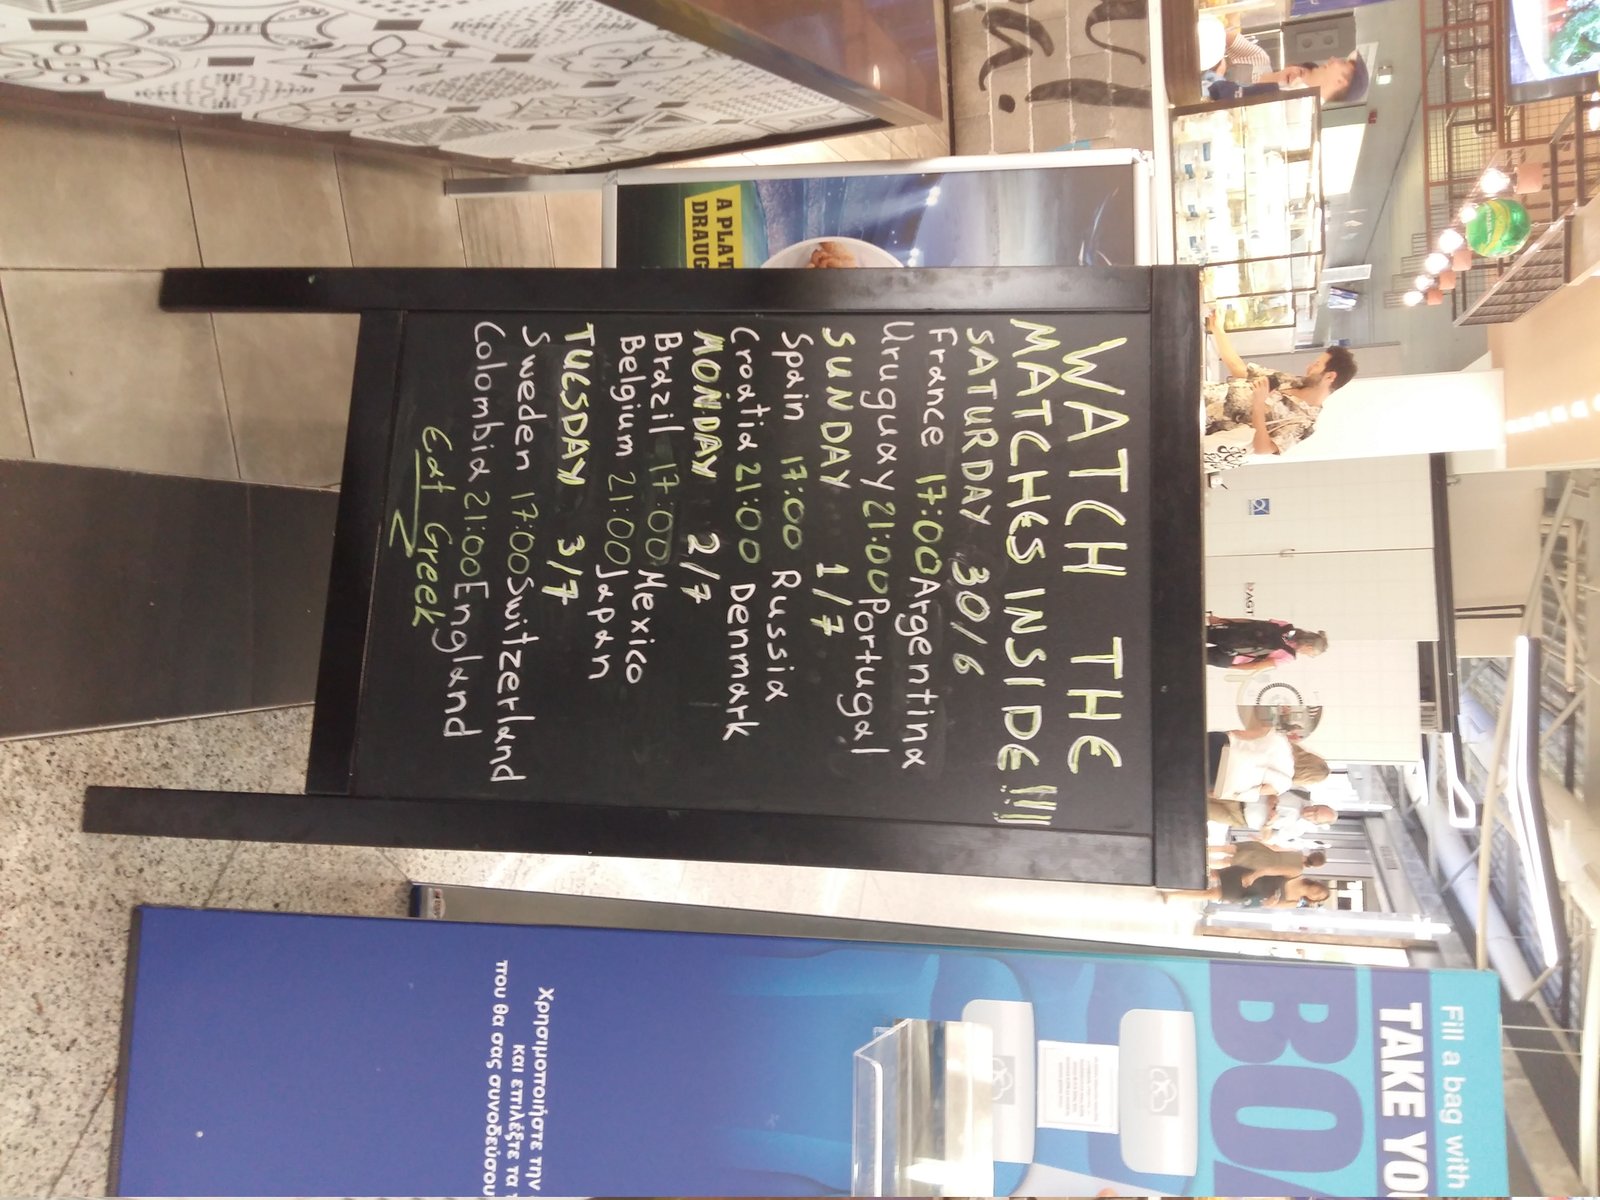 WATCH THE
MATCHES INSIDE!!!
SATURDAY 30/6
France 17:00 Argentina
Uruguay 21:00 Portugal
SUNDAY 1/7
Spain 17:00 Russia
Croatia 21:00 Denmark
MONDAY 2/7
Brazil 17:00 Mexico
Belgium 21:00 Japan
TUESDAY 3/7
Sweden 17:00 Switzerland
Colombia 21:00 England
Eat Greek
A PLAT
DRAUG
Fill a bag with
TAKE YO
BO
Χρησιμοποιήστε την
και επιλέξτε τα
που θα σας συνοδεύσου
AGT